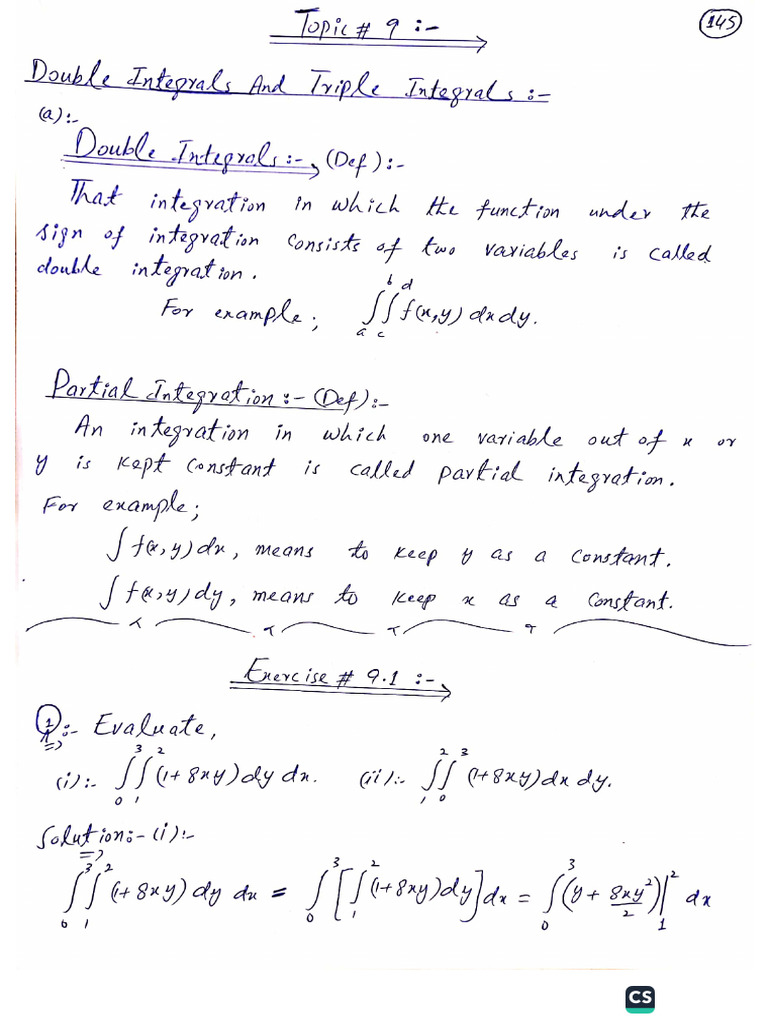 Topic # 9 :-
145
Double Integrals And Triple Integrals :-
(a):-
Double Integrals :- (Def) :-
That integration in which the function under the
sign of integration consists of two variables is called
double integration.
For example; ∫_a^b ∫_c^d f(x,y) dx dy.
Partial Integration :- (Def) :-
An integration in which one variable out of x or
y is kept constant is called partial integration.
For example;
∫ f(x,y) dx, means to keep y as a constant.
∫ f(x,y) dy, means to keep x as a constant.
Exercise # 9.1 :-
Q1:- Evaluate,
(i):- ∫_0^3 ∫_1^2 (1+8xy) dy dx. (ii):- ∫_1^2 ∫_0^3 (1+8xy) dx dy.
Solution:- (i):-
∫_0^3 ∫_1^2 (1+8xy) dy dx = ∫_0^3 [∫_1^2 (1+8xy) dy] dx = ∫_0^3 (y + 8xy²/2)|_1^2 dx
CS